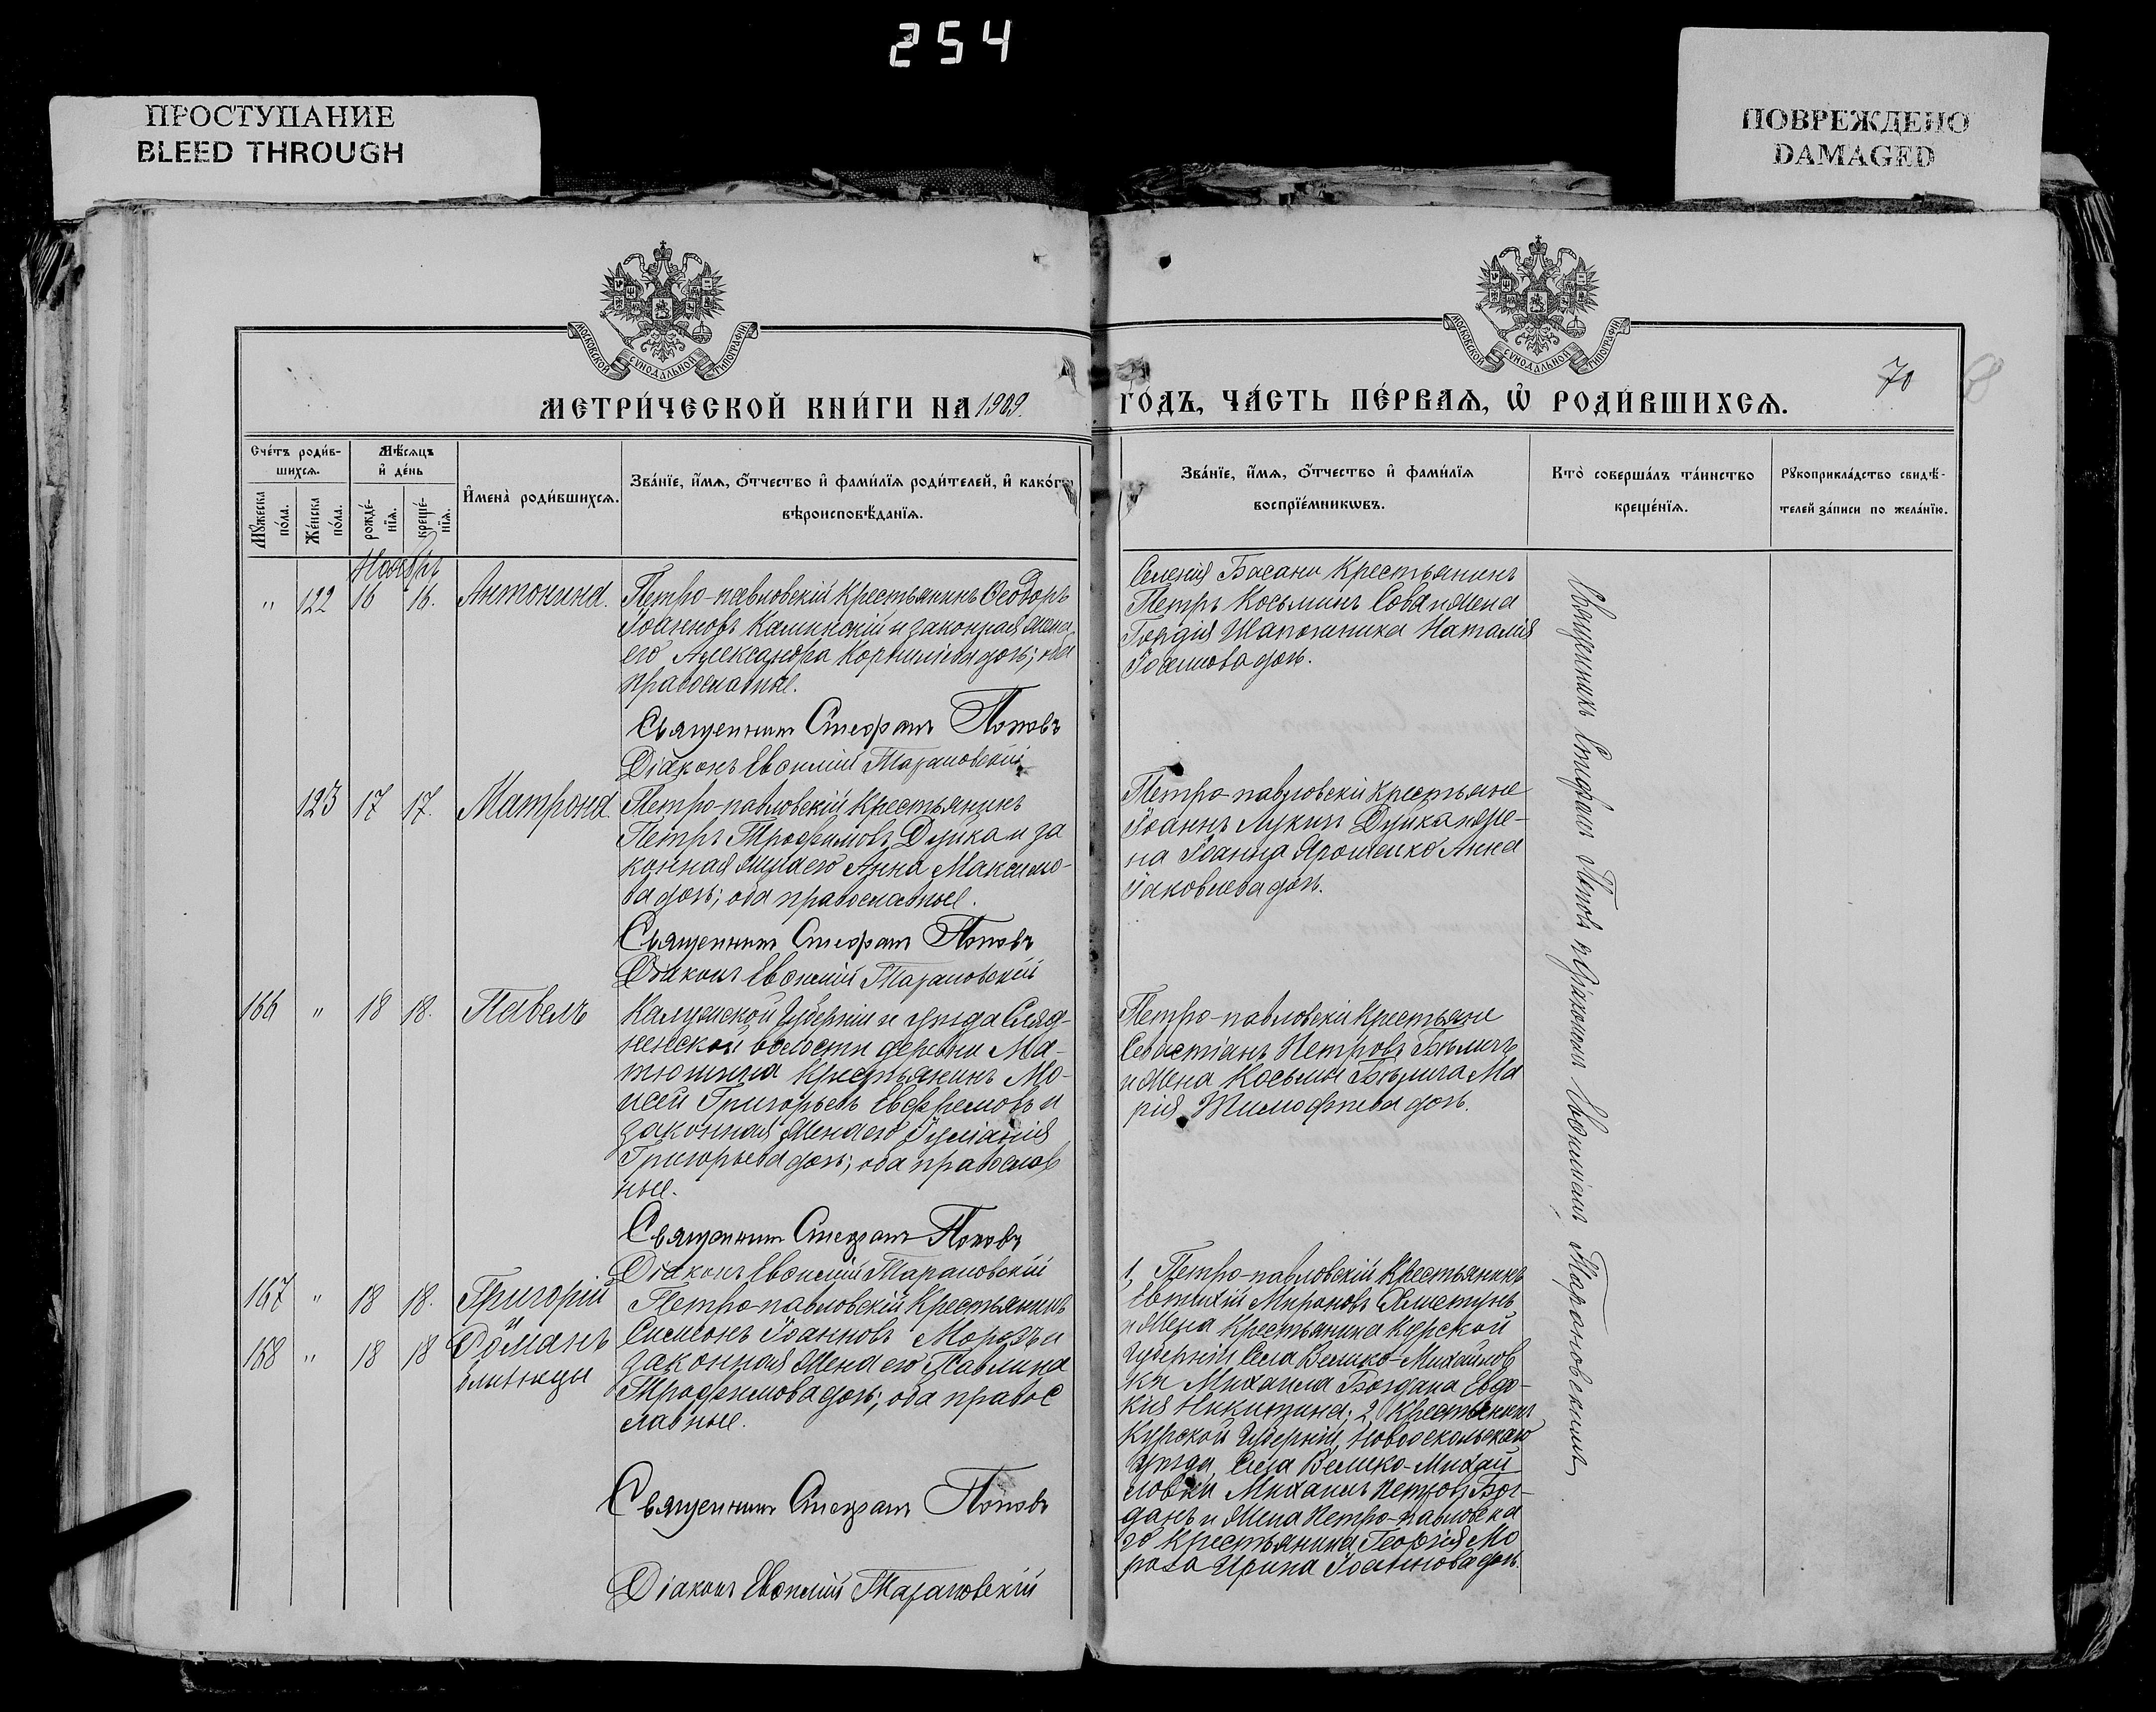 254
ПРОСТУПАНИЕ
BLEED THROUGH
ПОВРЕЖДЕНО
DAMAGED
МОСКОВСКОЙ СѴНОДАЛЬНОЙ ТИПОГРАФІИ
МОСКОВСКОЙ СѴНОДАЛЬНОЙ ТИПОГРАФІИ
70
68
МЕТРИ́ЧЕСКОЙ КНИ́ГИ НА 1909.
ГО́ДЪ, ЧА́СТЬ ПЕ́РВАѦ, Ѽ РОДИ́ВШИХСѦ.
Сче́тъ роди́в-
шихсѧ.
Мѣ́сѧцъ
и҆ де́нь
И҆мена̀ роди́вшихсѧ.
Зва́нїе, и҆́мѧ, ѻ҆́тчество и҆ фами́лїѧ роди́телей, и҆ како́гѡ
вѣроисповѣ́данїѧ.
Мꙋ́жеска
по́ла.
Же́нска
по́ла.
рожде́-
нїѧ.
креще́-
нїѧ.
Зва́нїе, и҆́мѧ, ѻ҆́тчество и҆ фами́лїѧ
воспрїе́мникѡвъ.
Кто̀ соверша́лъ та́инство
креще́нїѧ.
Рꙋкоприкла́дство свидѣ́-
телей за́писи по жела́нїю.
Ноябрь
" 122 16 16. Антонина.
Петро-павловскій крестьянинъ Ѳеодоръ
Іоанновъ Калинскій и законная жена
его Александра Корнилова дочь; оба
православные.
Священникъ Стефанъ Поповъ
Діаконъ Евѳимій Тарановскій
Селенія Басани крестьянинъ
Петръ Косьминъ Сова и жена
Гордія Шапошника Наталія
Іоаннова дочь.
123 17 17. Матрона.
Петро-павловскій крестьянинъ
Петръ Трофимовъ Дудка и за
конная жена его Анна Максимо-
ва дочь; оба православные.
Священникъ Стефанъ Поповъ
Діаконъ Евѳимій Тарановскій
Петро-павловскіе крестьяне
Іоаннъ Лукинъ Дудка и же-
на Іоанна Ярошенко Анна
Іаковлева дочь.
166 " 18 18. Павелъ
Калужской губерніи и уѣзда
волости деревни Ма-
тюнина крестьянинъ Мо-
исей Григорьевъ Евфремовъ и
законная жена его Іуліанія
Григорьева дочь; оба православ
ные.
Священникъ Стефанъ Поповъ
Діаконъ Евѳимій Тарановскій
Петро-павловскіе крестьяне
Севастіанъ Петровъ Бѣличъ
и жена Косьмы Бѣлича Ма
рія Тимофѣева дочь.
167 " 18 18. Григорій
168 " 18 18 Романъ
близнецы
Петро-павловскій крестьянинъ
Симеонъ Іоанновъ Морозъ и
законная жена его Павлина
Трофимова дочь; оба правос
лавные.
Священникъ Стефанъ Поповъ
Діаконъ Евѳимій Тарановскій
1, Петро-павловскій крестьянинъ
Евтихій Мироновъ
и жена крестьянина Курской
губерніи села Велико-Михайлов
ки Михаила Богдана Евдо-
кія Никитина; 2, крестьянинъ
Курской губерніи, Новооскольскаго
уѣзда, села Велико-Михай
ловки Михаилъ Петровъ Бог-
данъ и жена Петро-павловска
го крестьянина Георгія Мо
роза Ирина Іоаннова дочь.
Священникъ Стефанъ Поповъ и діаконъ Евѳиміемъ Тарановскимъ,